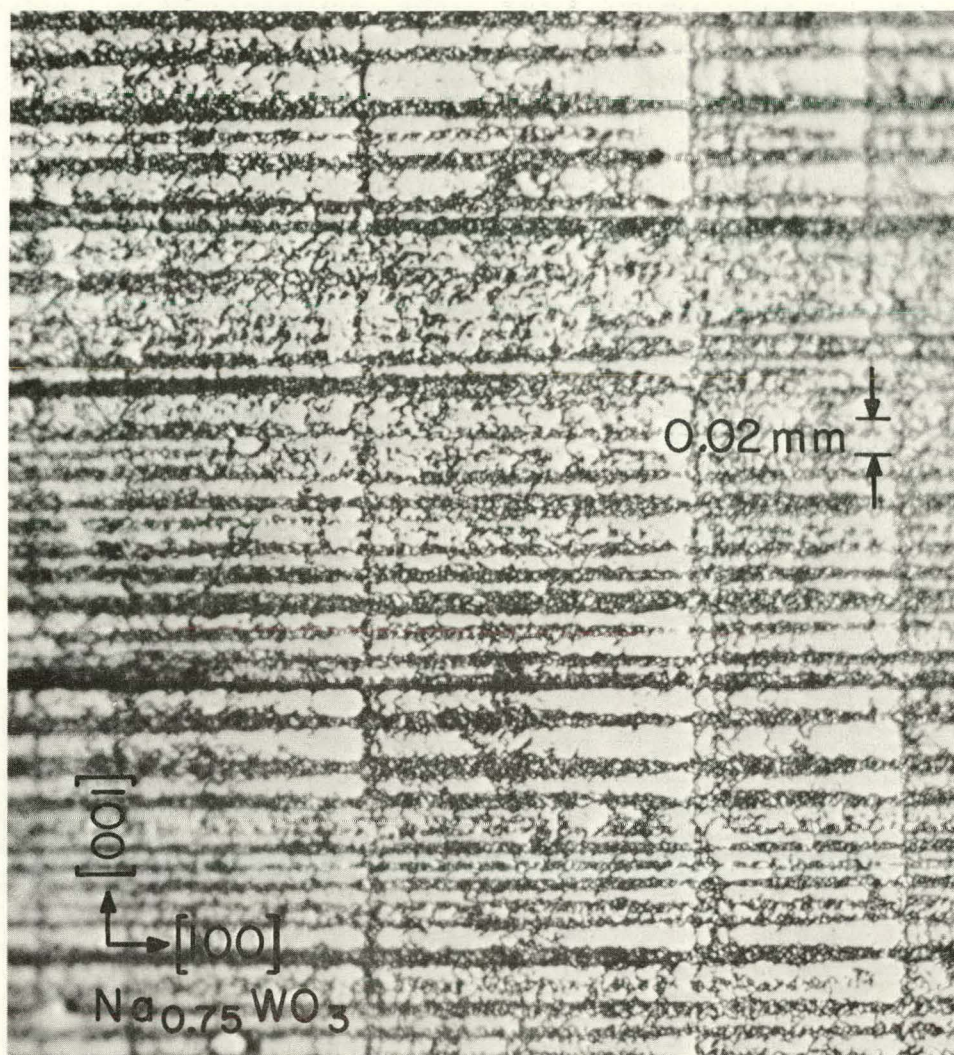 0.02 mm
[001]
[100]
Na0.75WO3